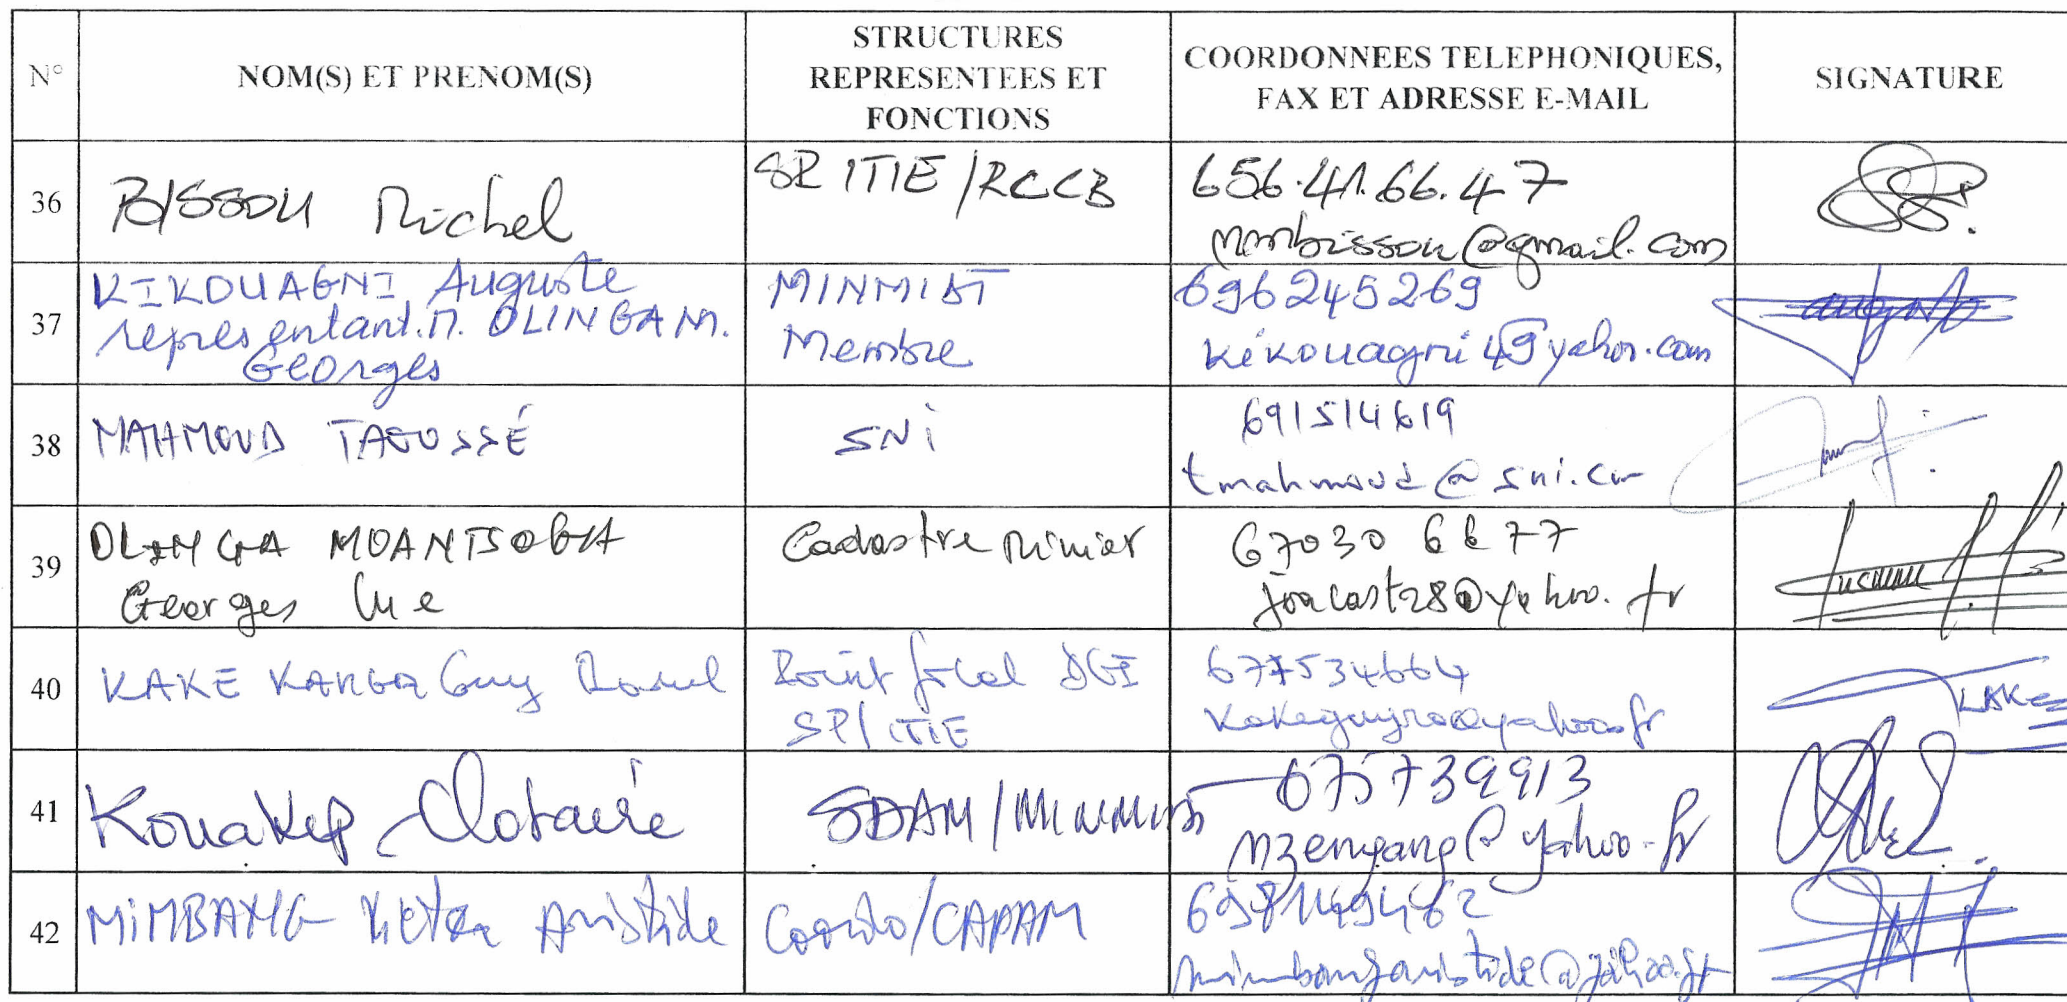 N°
NOM(S) ET PRENOM(S)
STRUCTURES
REPRESENTEES ET
FONCTIONS
COORDONNEES TELEPHONIQUES,
FAX ET ADRESSE E-MAIL
SIGNATURE
36
BISSOU Michel
SP ITIE/RCCB
656.41.66.47
mmbissou@gmail.com
37
KIKOUAGNI Auguste
représentant.M. OLINGA M.
Georges
MINMIDT
Membre
696245269
kikouagni49yahoo.com
38
MAHMOUD TAOUSSÉ
SNi
691514619
tmahmoud@sni.cm
39
OLINGA MOANTSOGHA
Georges Luc
Cadastre Minier
67030 6677
joacast28@yahoo.fr
40
KAKE KANGA Guy Raoul
Point focal DGI
SP/ITIE
677534664
kakeguyra@yahoo.fr
41
Kouakep Clotaire
SDAM/MINMIDT
675739913
nzengang@yahoo.fr
42
MIMBANG Aristide
Coordo/CAPAM
mimbangaristide@yahoo.fr